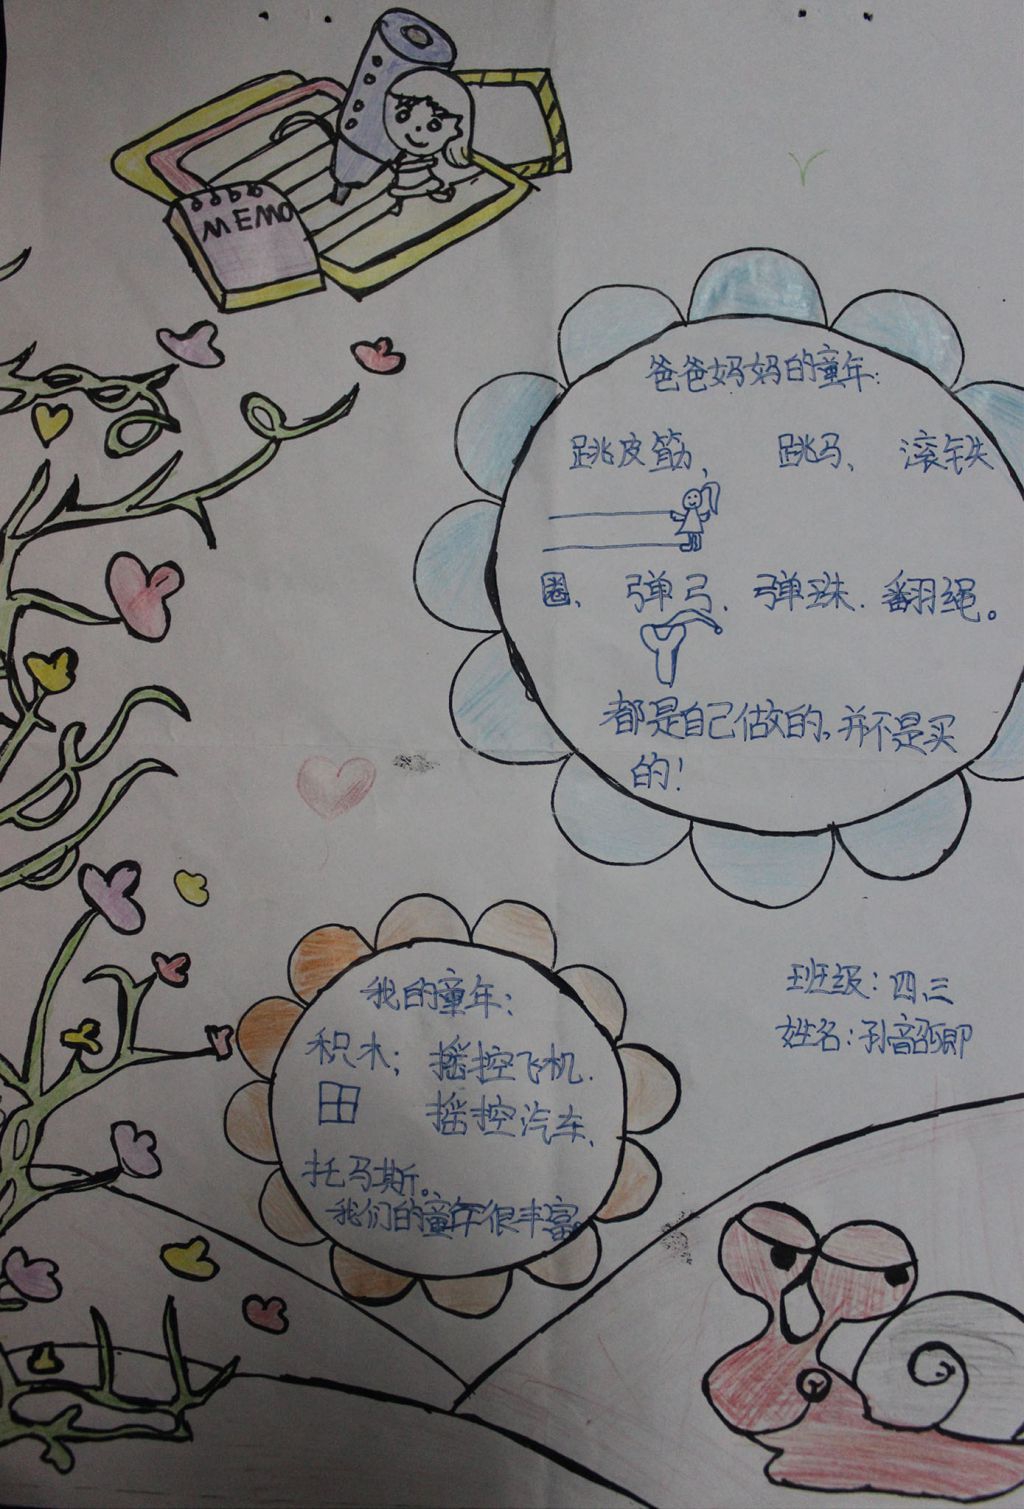 MEMO
爸爸妈妈的童年:
跳皮筋、 跳马、 滚铁
圈、 弹弓、弹珠、翻绳。
都是自己做的,并不是买
的!
班级:四、三
姓名:孙韶卿
我的童年:
积木; 摇控飞机、
摇控汽车、
托马斯。
我们的童年很丰富。